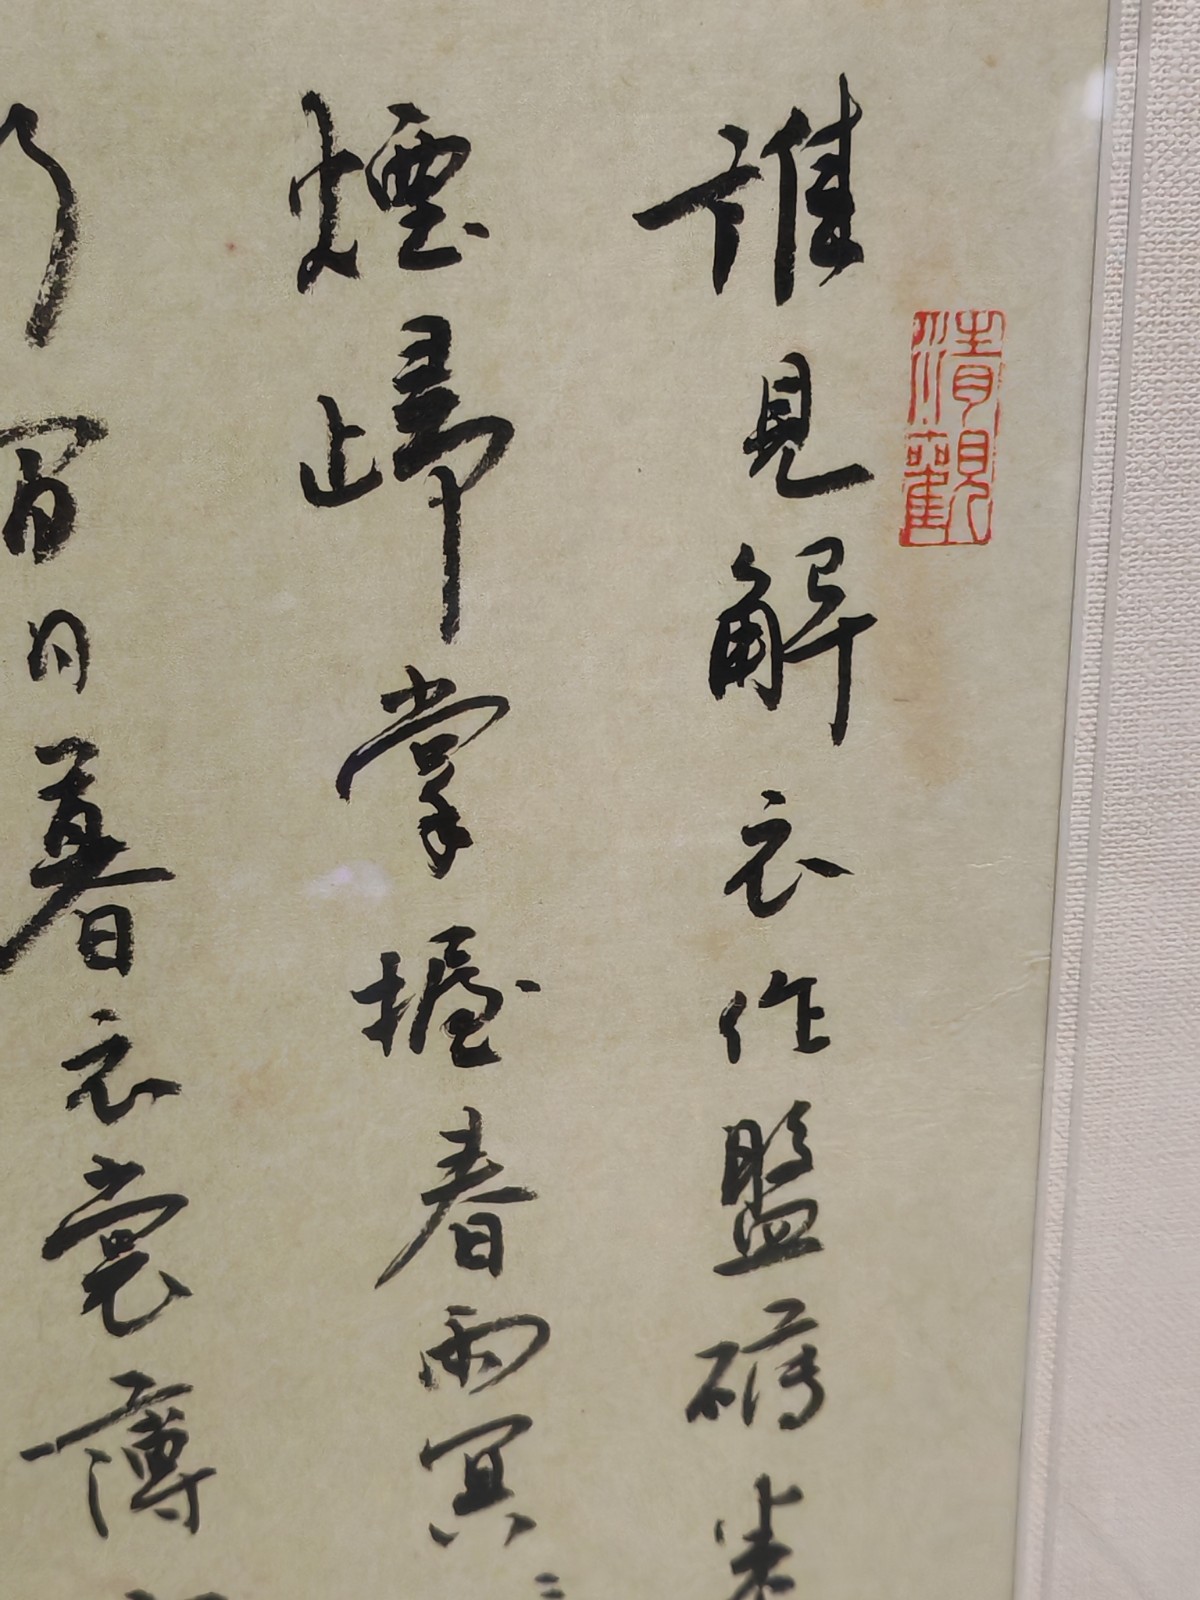 清觀
誰見解衣作盤礴
煙歸掌握春雨冥〻
日暮衣裳薄